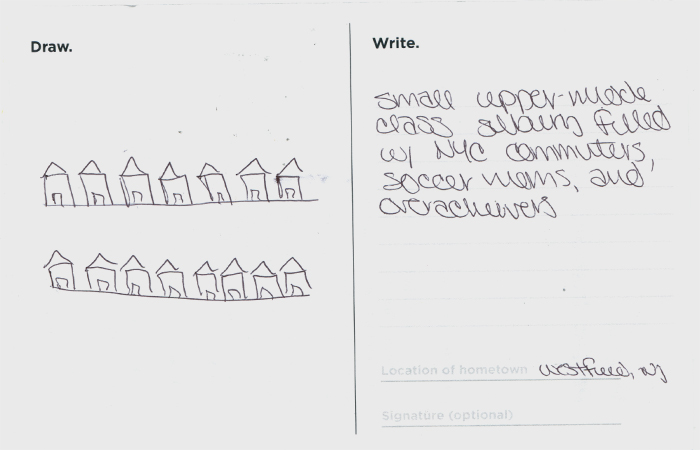 Draw.
Write.
small upper-middle
class suburb filled
w/ NYC commuters,
soccer moms, and
overachievers
Location of hometown Westfield, NJ
Signature (optional)